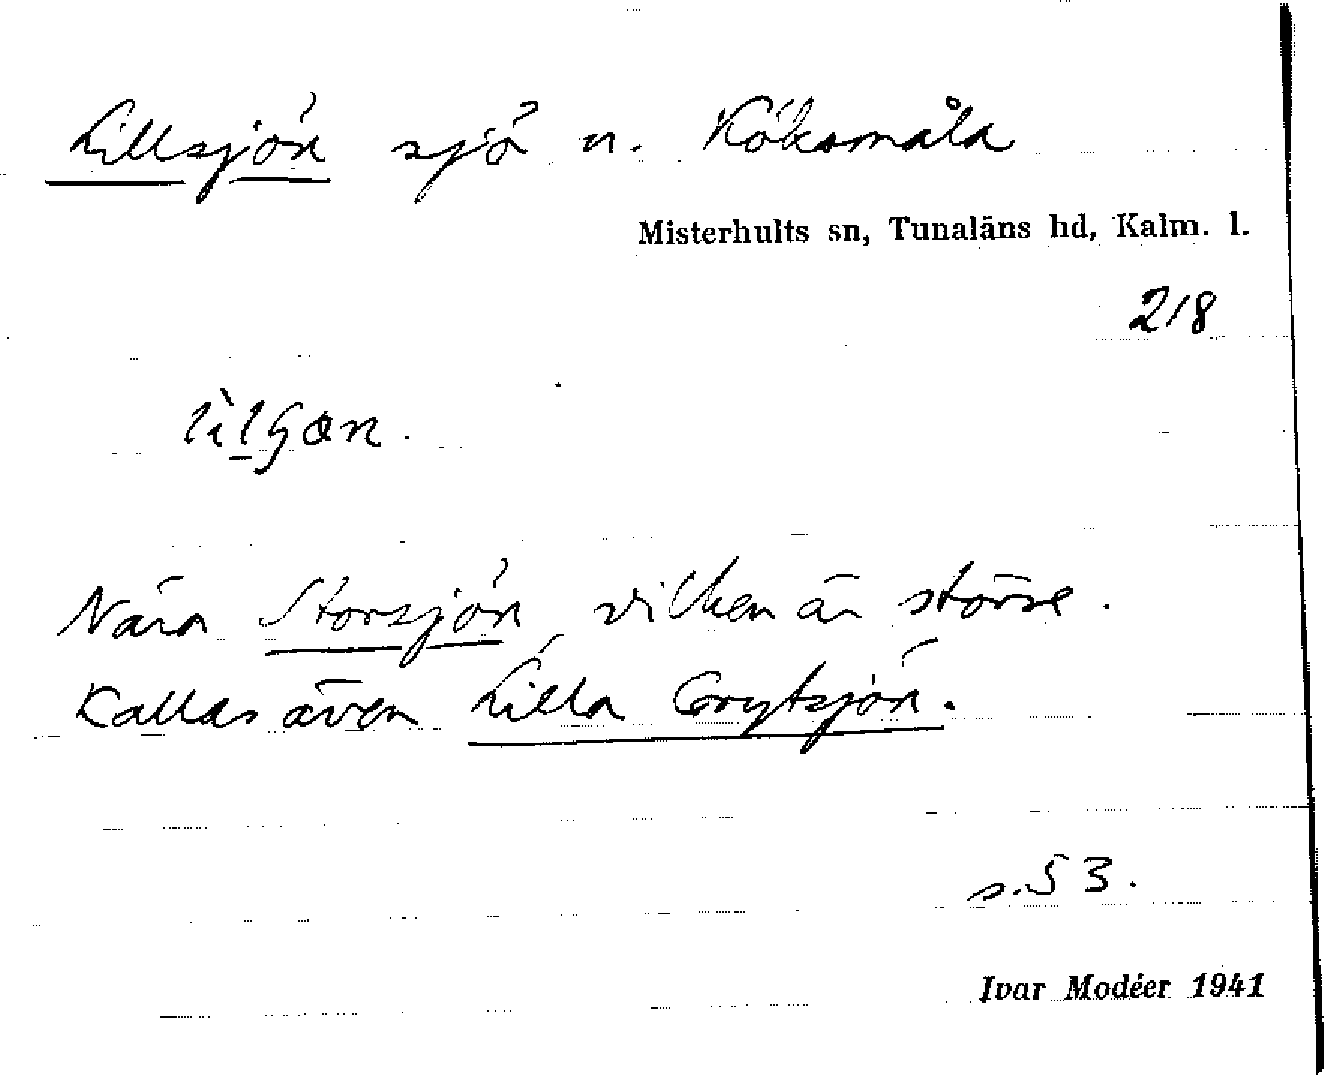 Lillsjön sjö n. Köksmåla
Misterhults sn, Tunaläns hd, Kalm. l.
218
Nära Storsjön, vilken är större.
Kallas även Lilla Grytsjön.
s. 53.
Ivar Modéer 1941